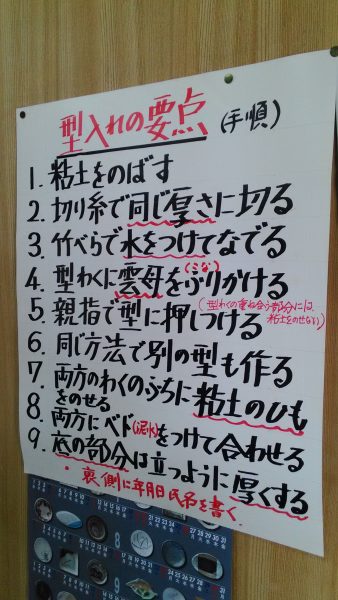 型入れの要点(手順)
1. 粘土をのばす
2. 切り糸で同じ厚さに切る
3. 竹べらで水をつけてなでる
4. 型わくに雲母(きら)をふりかける
5. 親指で型に押しつける
(型わくの重ね合う部分には、粘土をのせない)
6. 同じ方法で別の型も作る
7. 両方のわくのふちに粘土のひも
をのせる
8. 両方にベド(泥水)をつけて合わせる
9. 底の部分は立つように厚くする
・裏側に年月日氏名を書く.